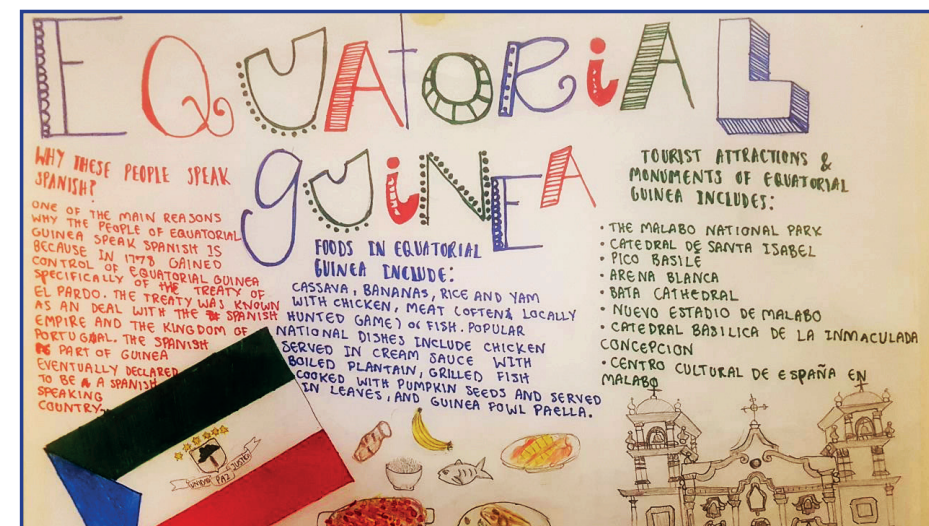 EQUATORIAL
GUINEA
WHY THESE PEOPLE SPEAK
SPANISH?
ONE OF THE MAIN REASONS
WHY THE PEOPLE OF EQUATORIAL
GUINEA SPEAK SPANISH IS
BECAUSE IN 1778 GAINED
CONTROL OF EQUATORIAL GUINEA
SPECIFICALLY OF THE TREATY OF
EL PARDO. THE TREATY WAS KNOWN
AS AN DEAL WITH THE SPANISH
EMPIRE AND THE KINGDOM OF
PORTUGAL. THE SPANISH
PART OF GUINEA
EVENTUALLY DECLARED
TO BE A SPANISH
SPEAKING
COUNTRY.
FOODS IN EQUATORIAL
GUINEA INCLUDE:
CASSAVA, BANANAS, RICE AND YAM
WITH CHICKEN, MEAT (OFTEN LOCALLY
HUNTED GAME) OR FISH. POPULAR
NATIONAL DISHES INCLUDE CHICKEN
SERVED IN CREAM SAUCE WITH
BOILED PLANTAIN, GRILLED FISH
COOKED WITH PUMPKIN SEEDS AND SERVED
IN LEAVES, AND GUINEA FOWL PAELLA.
TOURIST ATTRACTIONS &
MONUMENTS OF EQUATORIAL
GUINEA INCLUDES:
• THE MALABO NATIONAL PARK
• CATEDRAL DE SANTA ISABEL
• PICO BASILE
• ARENA BLANCA
• BATA CATHEDRAL
• NUEVO ESTADIO DE MALABO
• CATEDRAL BASILICA DE LA INMACULADA
CONCEPCION
• CENTRO CULTURAL DE ESPAÑA EN
MALABO
UNIDAD PAZ JUSTICIA